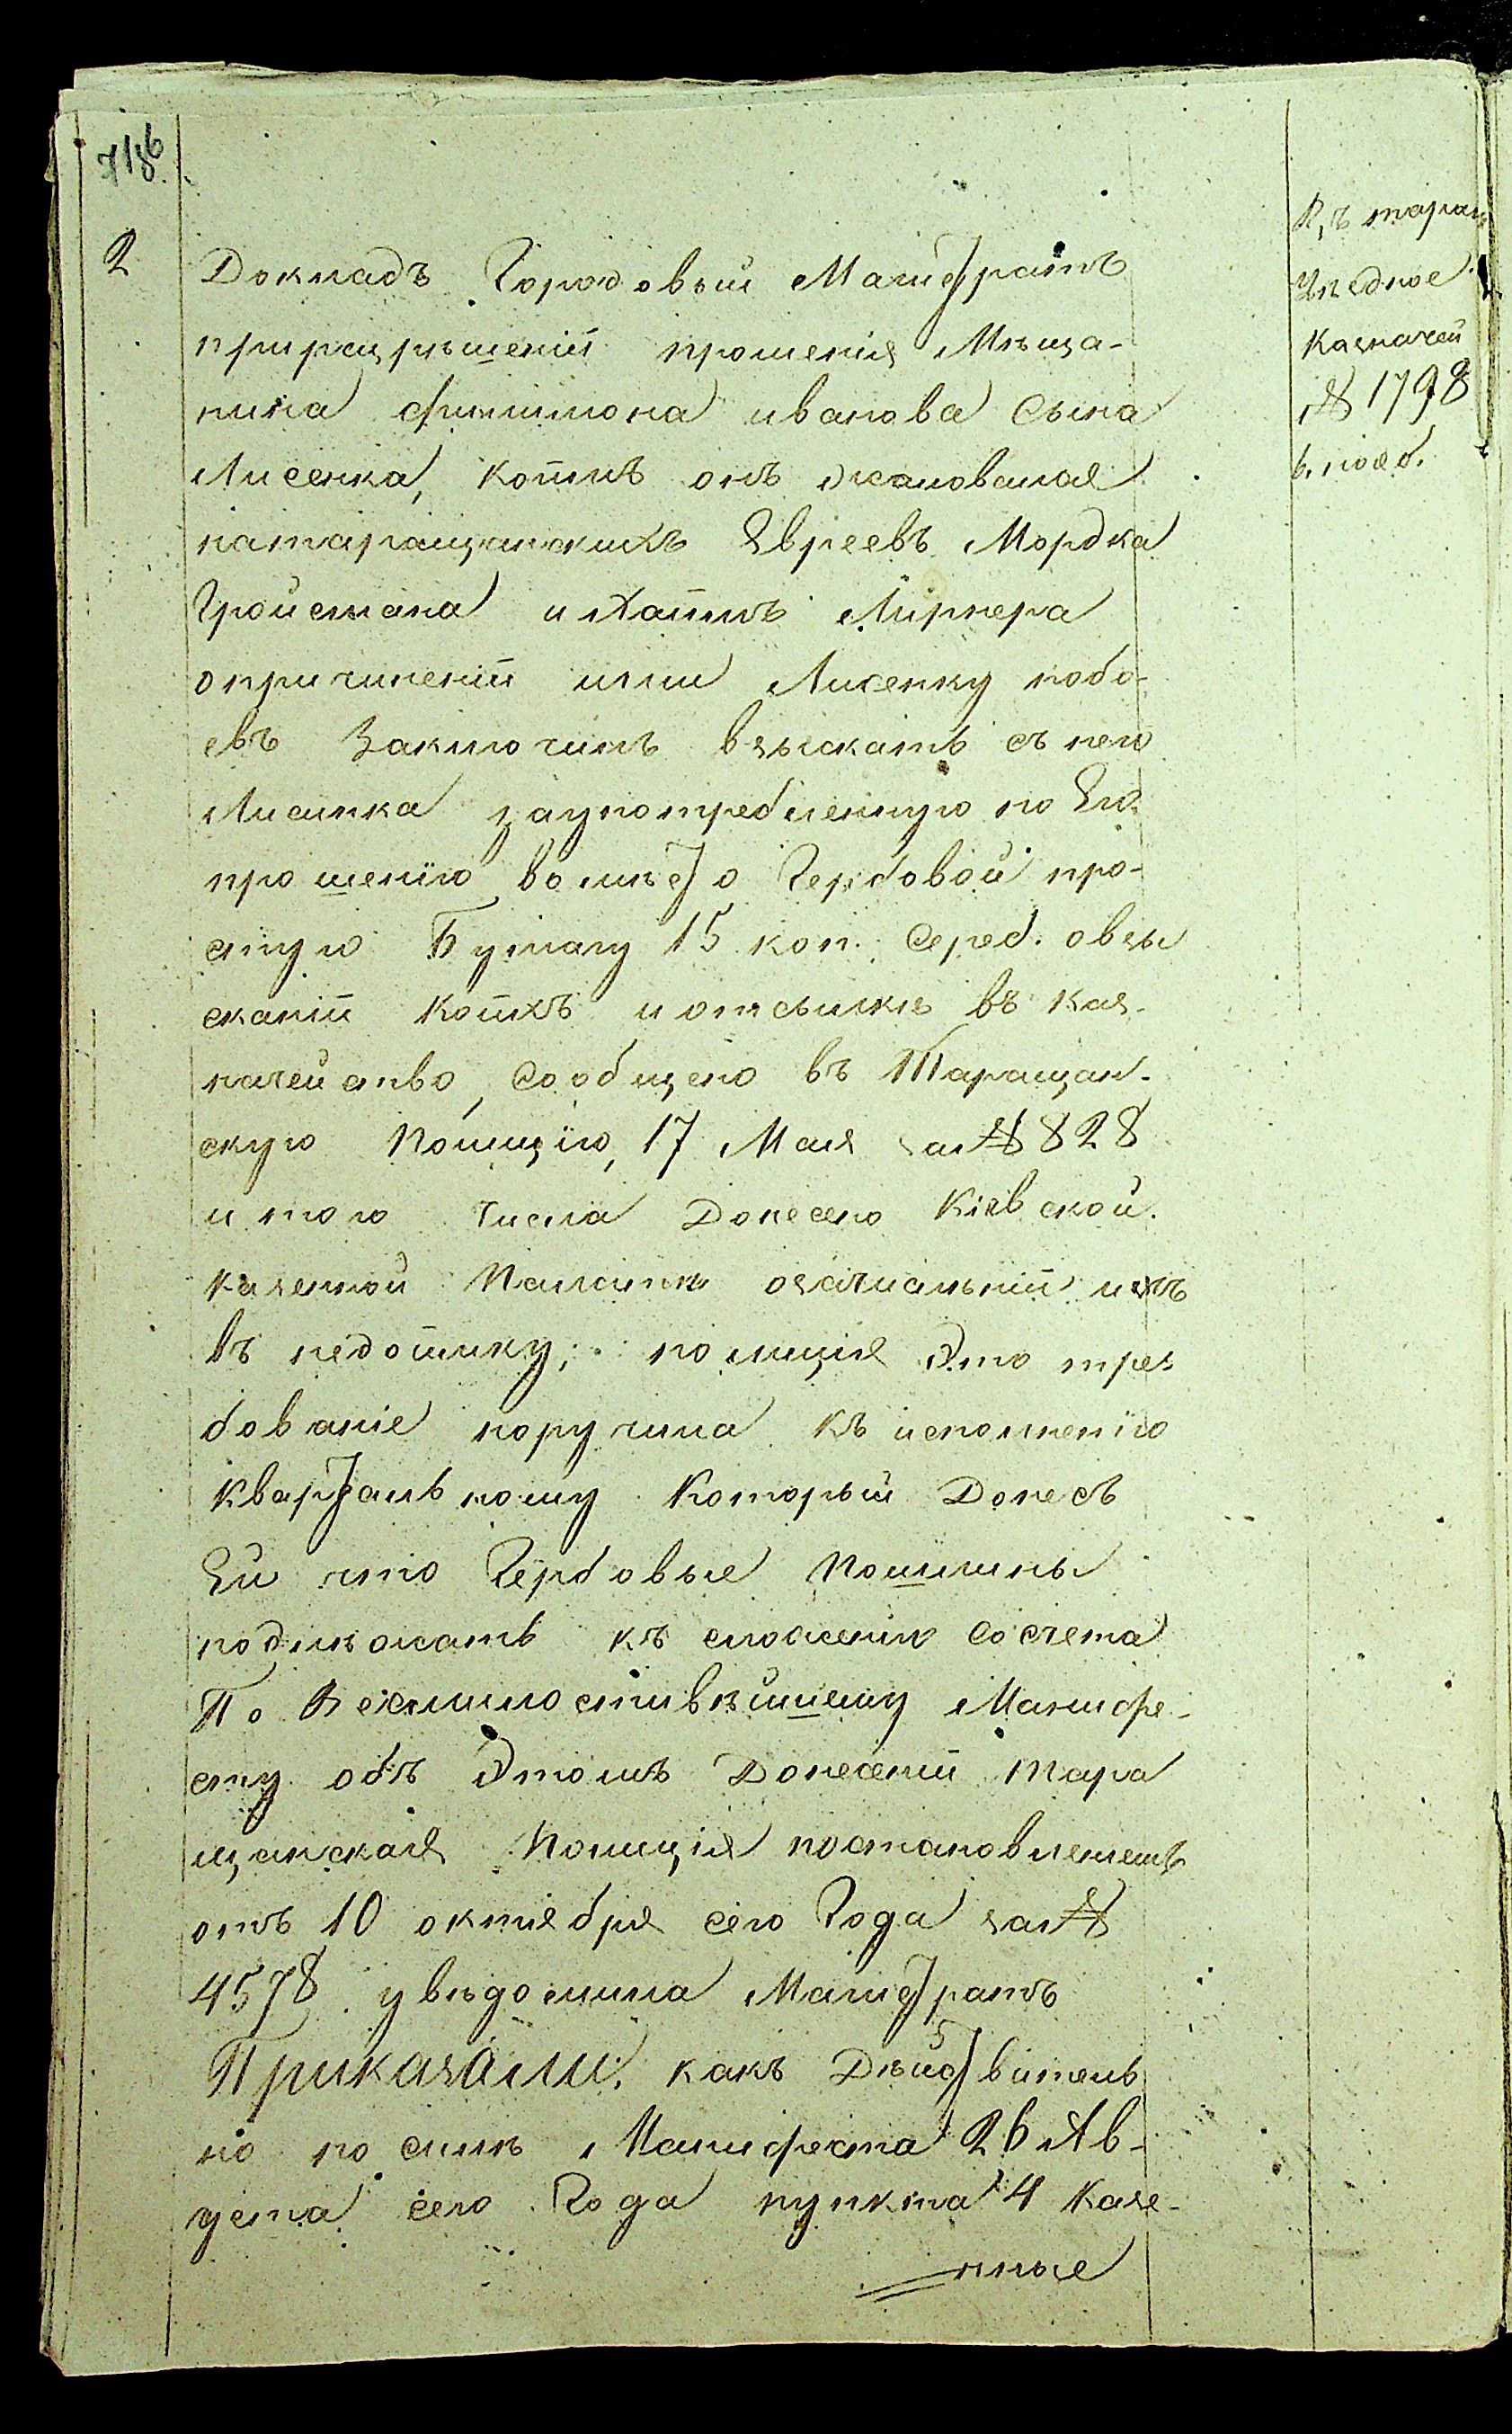 7186.
2
Докладъ Городовый Магистратъ
прирозрешеніи прошенія Мѣща-
нина филимона иванова Сына
Лисенка, коимъ онъ жаловался
натаращанскихъ Евреевъ Мордка
Гройсмана и Хаимъ Лирнера
опричиненіи ими Лисенку побо-
евъ Заключилъ взыскать съ него
Лисинка заупотребленную по Его
прошенію вомѣсто Гербовой про-
стую Бумагу 15 коп. Сереб. овзы
сканіи коихъ иотсылкѣ въ каз-
начейство, Сообщено въ Таращан-
скую Полицію, 17 Мая за № 828
итого числа Донесено Кіевской
казенной Палатѣ озачисленіи ихъ
въ недоимку; полиція Это тре-
бованіе поручила къ исполненію
Квартальному Который Донесъ
Ей что Гербовые Пошлины
подлѣжатъ къ сложенію Со счета
По Всемилостивѣйшему Манифе-
сту объ Этомъ Донесеніи тара
щанская Полиція постановленіемъ
отъ 10 октября сего Года за №
4578 увѣдомила Магистратъ
Приказали: какъ Дѣйствитель
но по силѣ Манифеста 26 Ав-
густа сего Года пункта 4 Казе-
нные
Въ таращ
Уѣздное
Казначей
№ 1798
6. нояб.